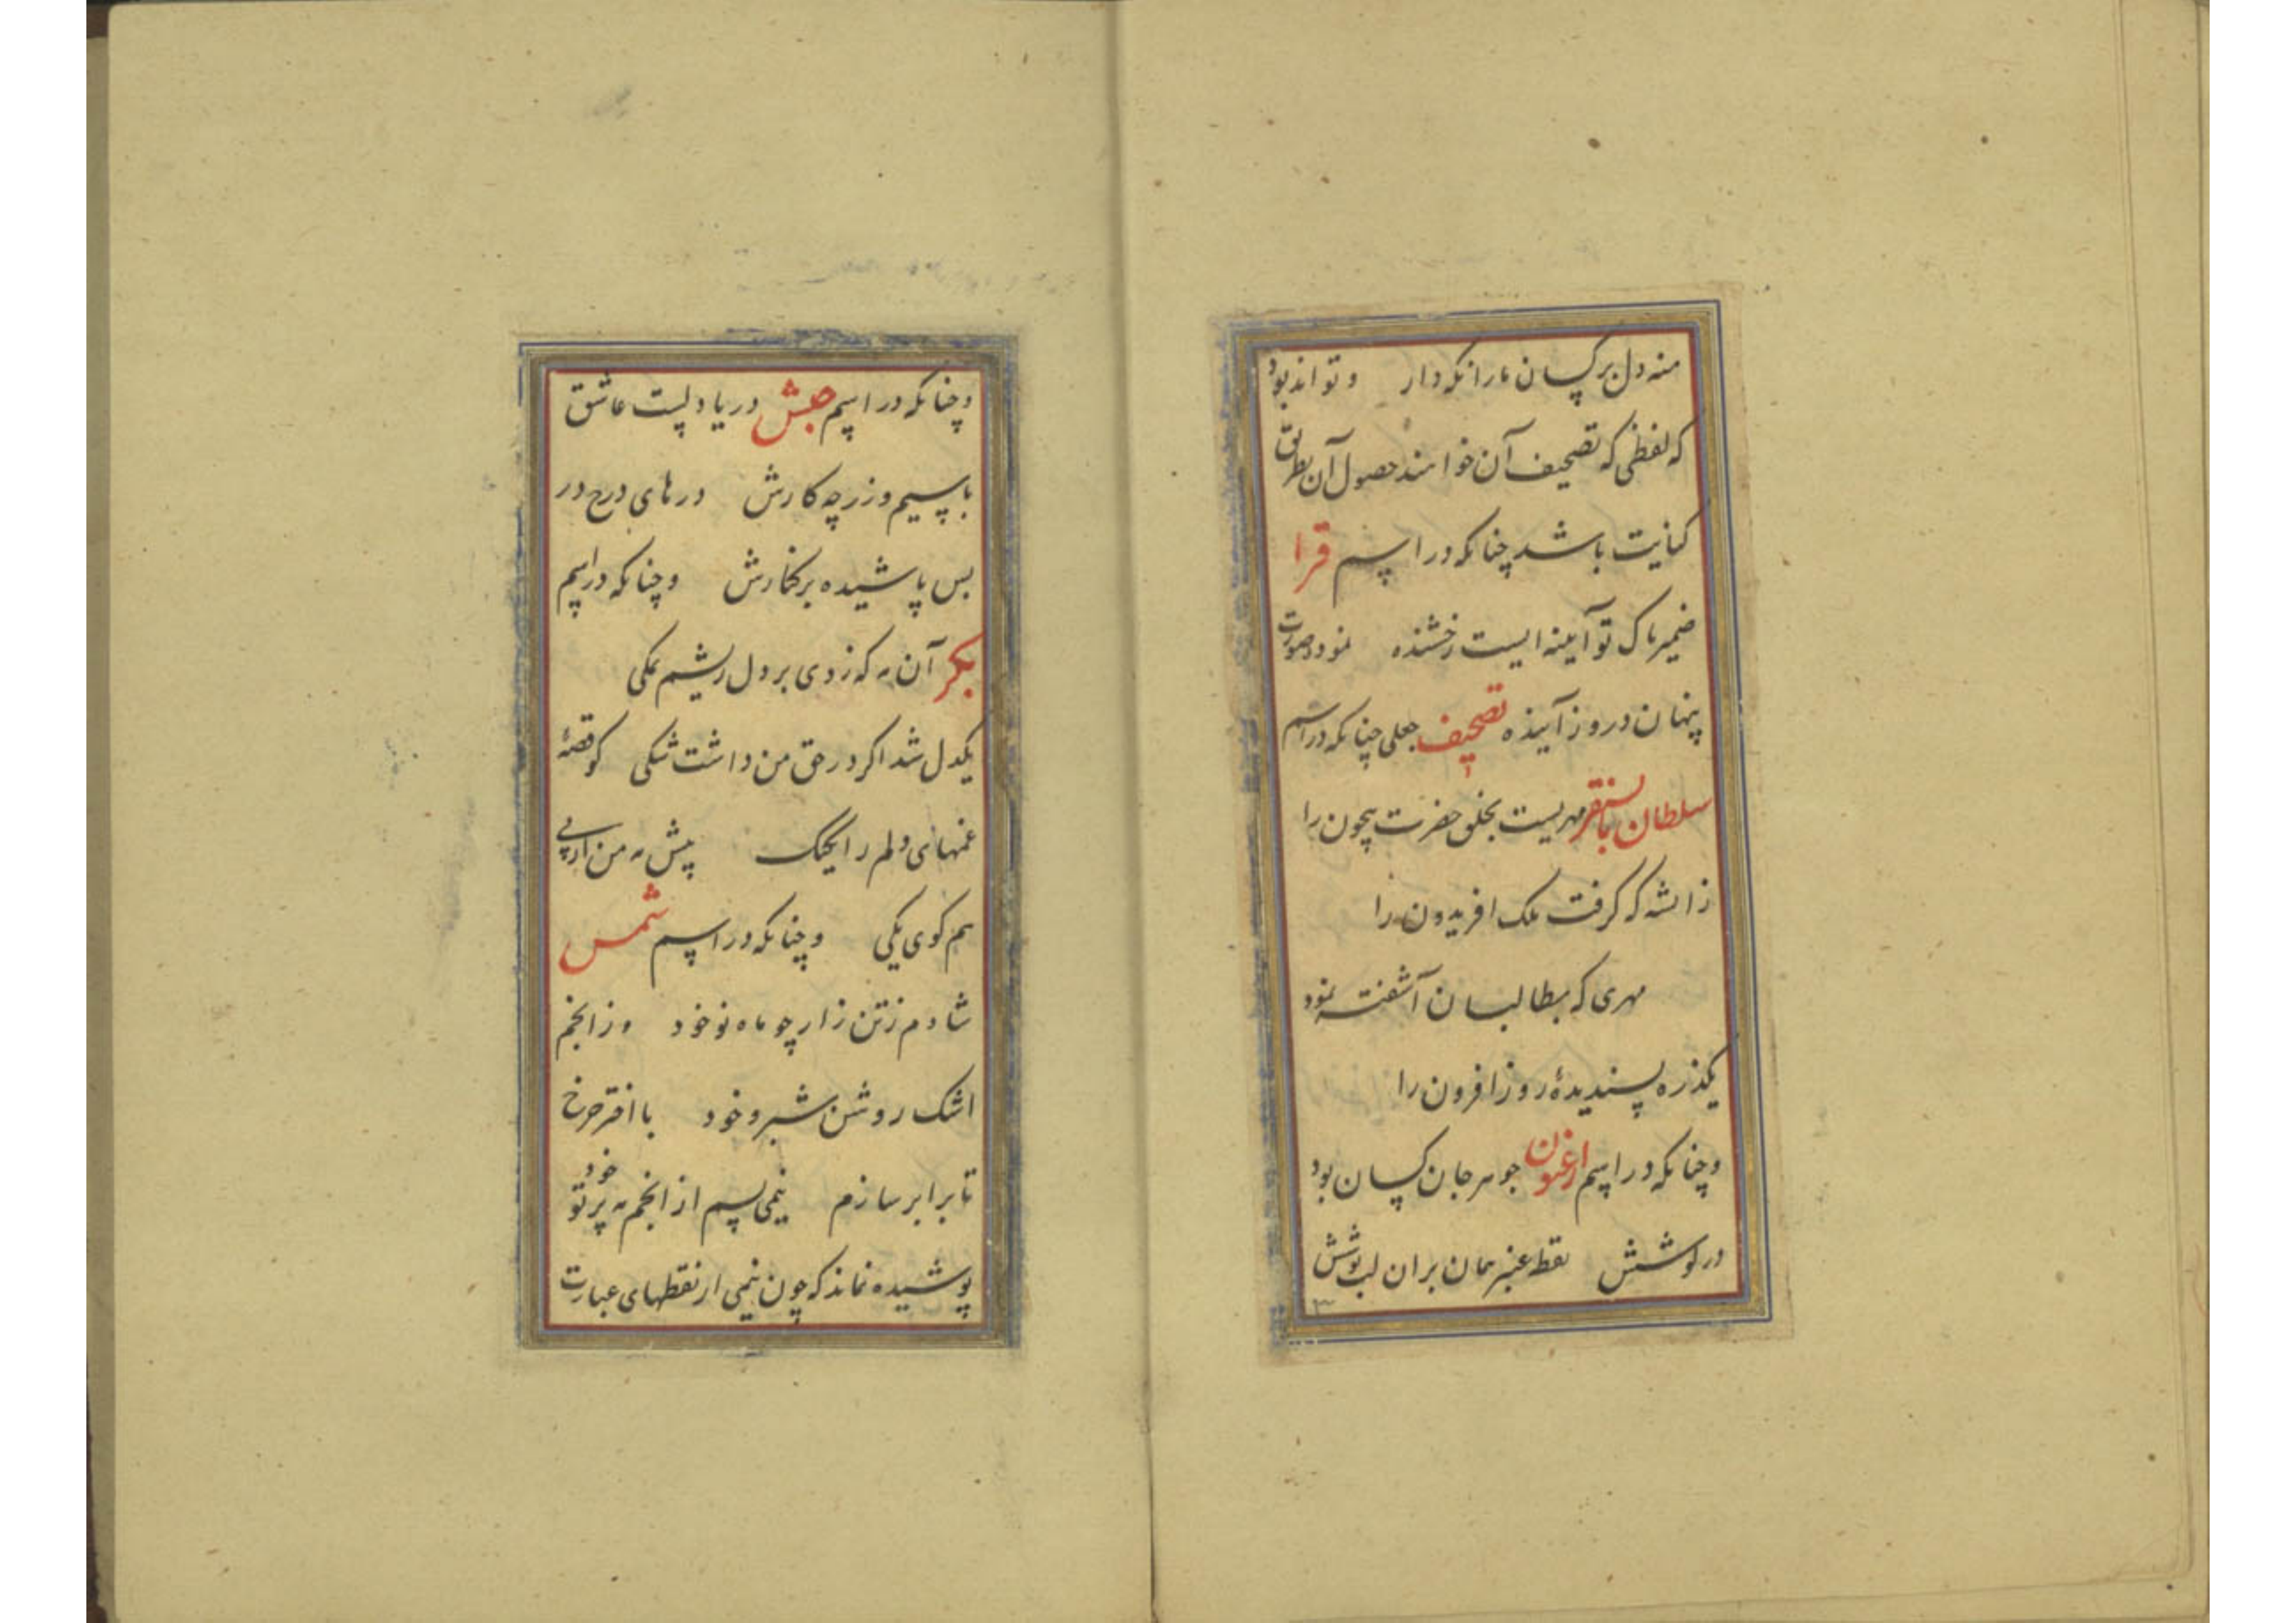 منه دل بر کسان ما را نکه دار و تواند بود
که لفظی که تصحیف آن خواهند حصول آن بطریق
کنایت باشد چنانکه در اسم قرا
ضمیر پاک تو آیینه ایست رخشنده نمود صورت
پنهان در روز آینده تصحیف جعلی چنانکه در اسم
سلطان بایسنقر مهریست بخلق حضرت بیچون را
زانشه که گرفت ملک افریدون را
مهری که بطالبان آشفته نمود
یکذره پسندیدهٔ روز افزون را
و چنانکه در اسم ارغون جوهر جان کسان بود
در گوشش نقط عنبر همان بر ان لب نوشش
و چنانکه در اسم حبش دریا دلست عاشق
با سیم و زر چه کارش درهای درج در
بس پاشیده بر کنارش و چنانکه در اسم
بکر آن مه که زدی بر دل ریشم نمکی
یکدل شد اگر در حق من داشت شکی کو قصهٔ
غمهای دلم را یکیک پیش مه من از پی
هم کوی یکی و چنانکه در اسم شمس
شادم ز تن زار چو ماه نو خود وز انجم
اشک روشن شبرو خود با اختر چرخ
تا برابر سازم نیمی بسم از انجم مه پرتو خود
پوشیده نماند که چون نیمی از نقطهای عبارت